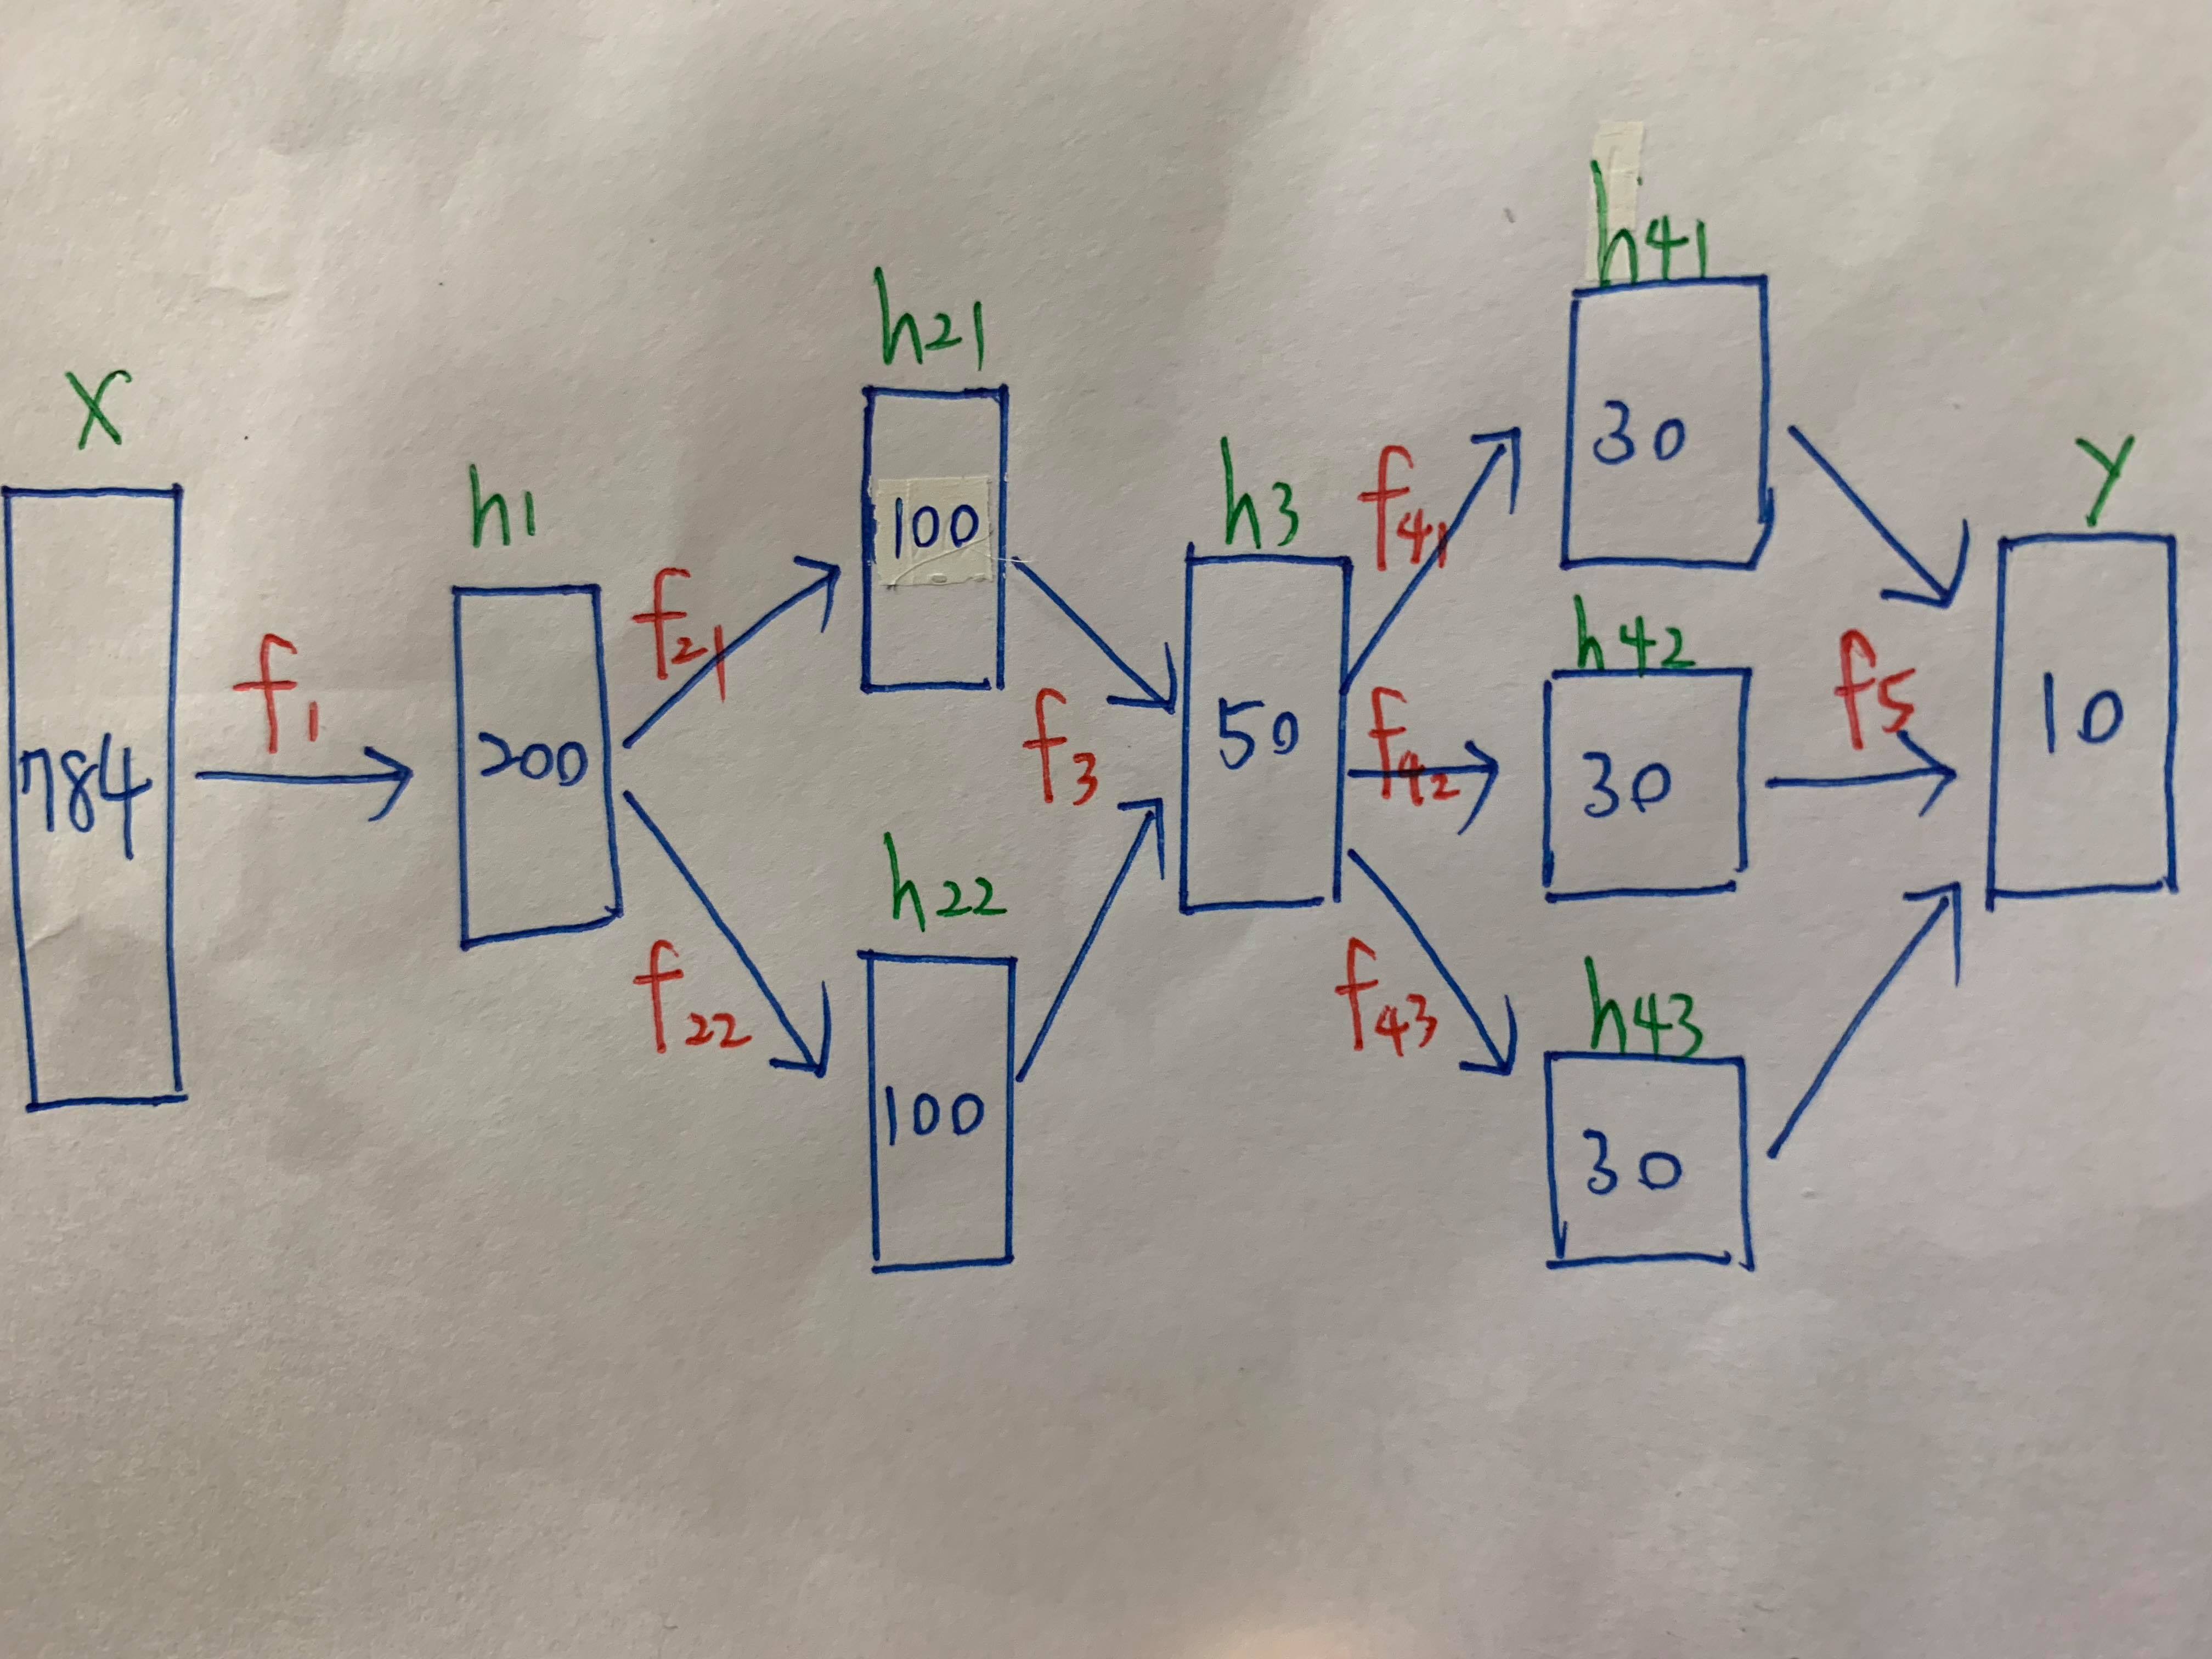 X
784
f1
h1
200
f21
f22
h21
100
h22
100
f3
h3
50
f41
f42
f43
h41
30
h42
30
h43
30
f5
Y
10